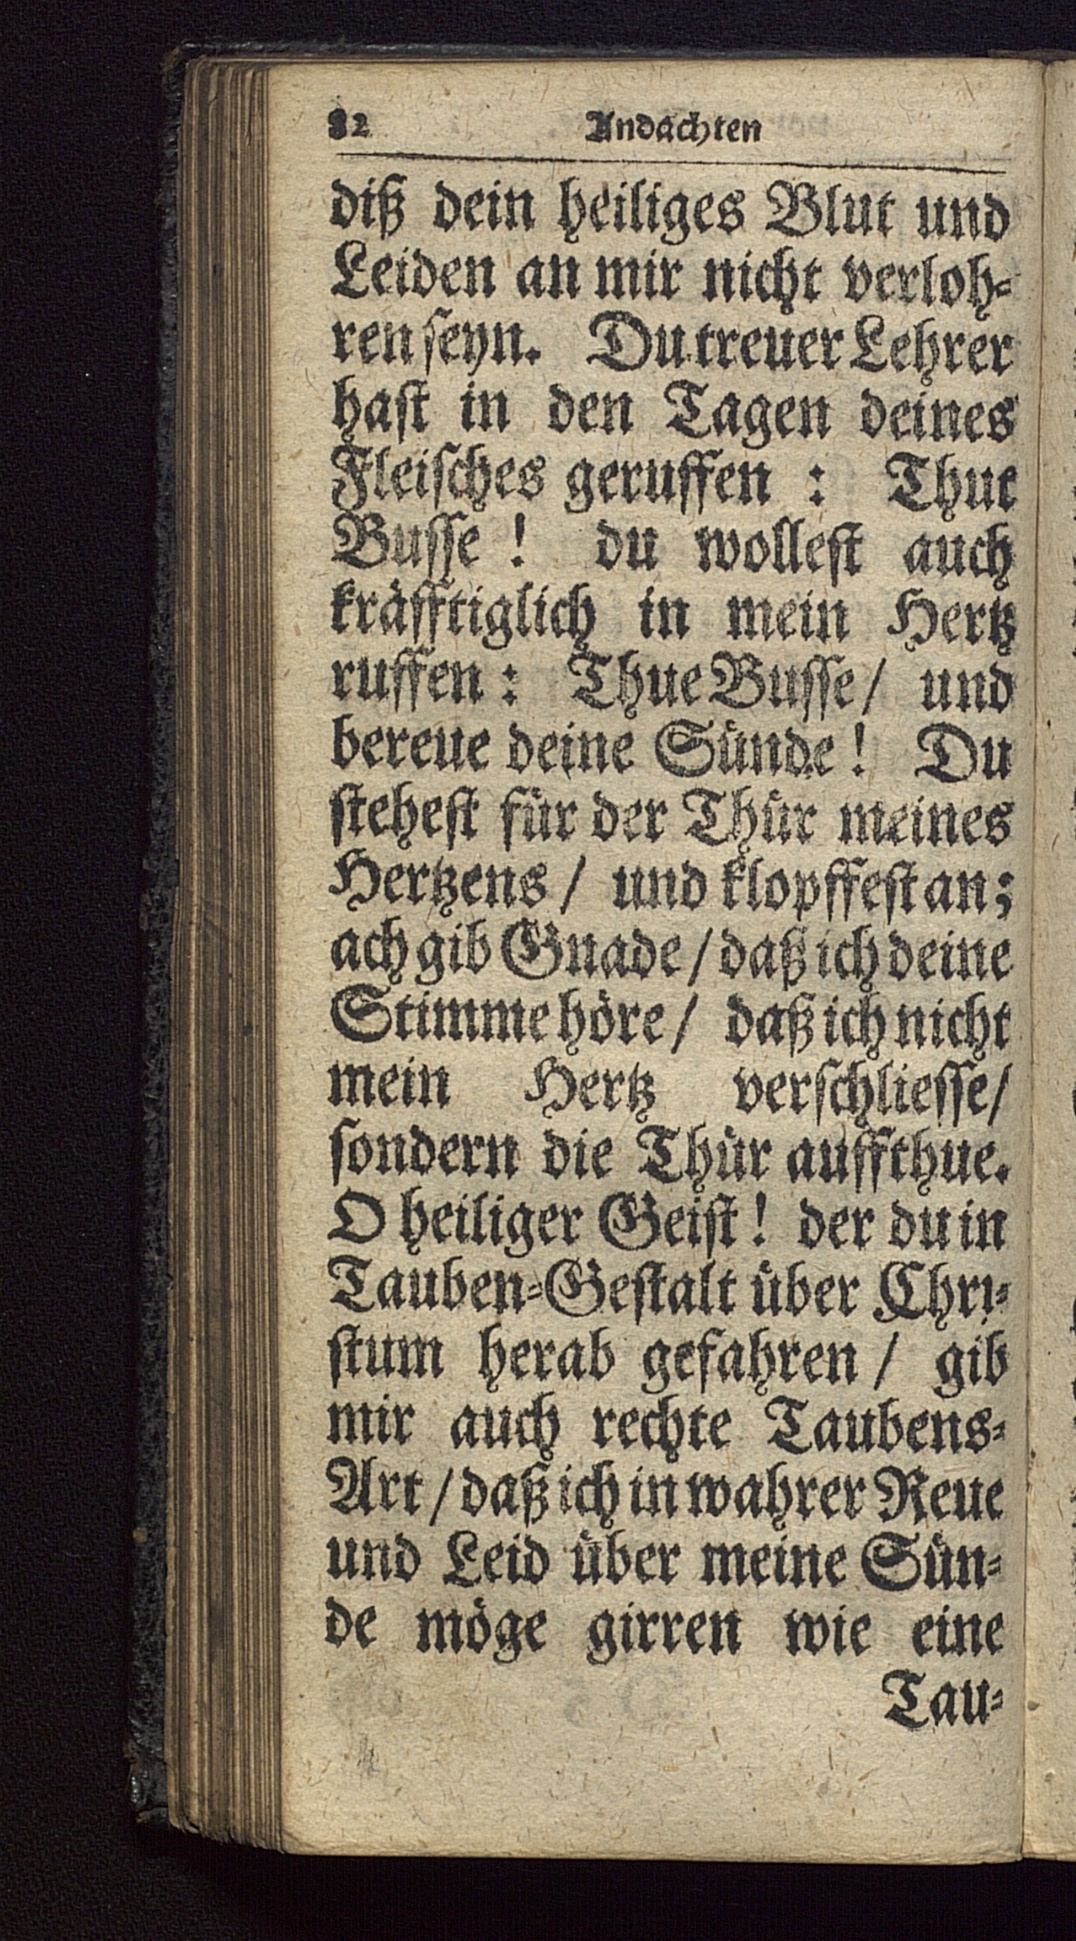 82 Andachten
diß dein heiliges Blut und
Leiden an mir nicht verloh-
ren seyn. Du treuer Lehrer
hast in den Tagen deines
Fleisches geruffen : Thut
Busse ! du wollest auch
kräfftiglich in mein Hertz
ruffen : Thue Busse / und
bereue deine Sünde ! Du
stehest für der Thür meines
Hertzens / und klopffest an;
ach gib Gnade / daß ich deine
Stimme höre / daß ich nicht
mein Hertz verschliesse/
sondern die Thür auffthue.
O heiliger Geist ! der du in
Tauben-Gestalt über Chri-
stum herab gefahren / gib
mir auch rechte Taubens-
Art / daß ich in wahrer Reue
und Leid über meine Sün-
de möge girren wie eine
Tau-